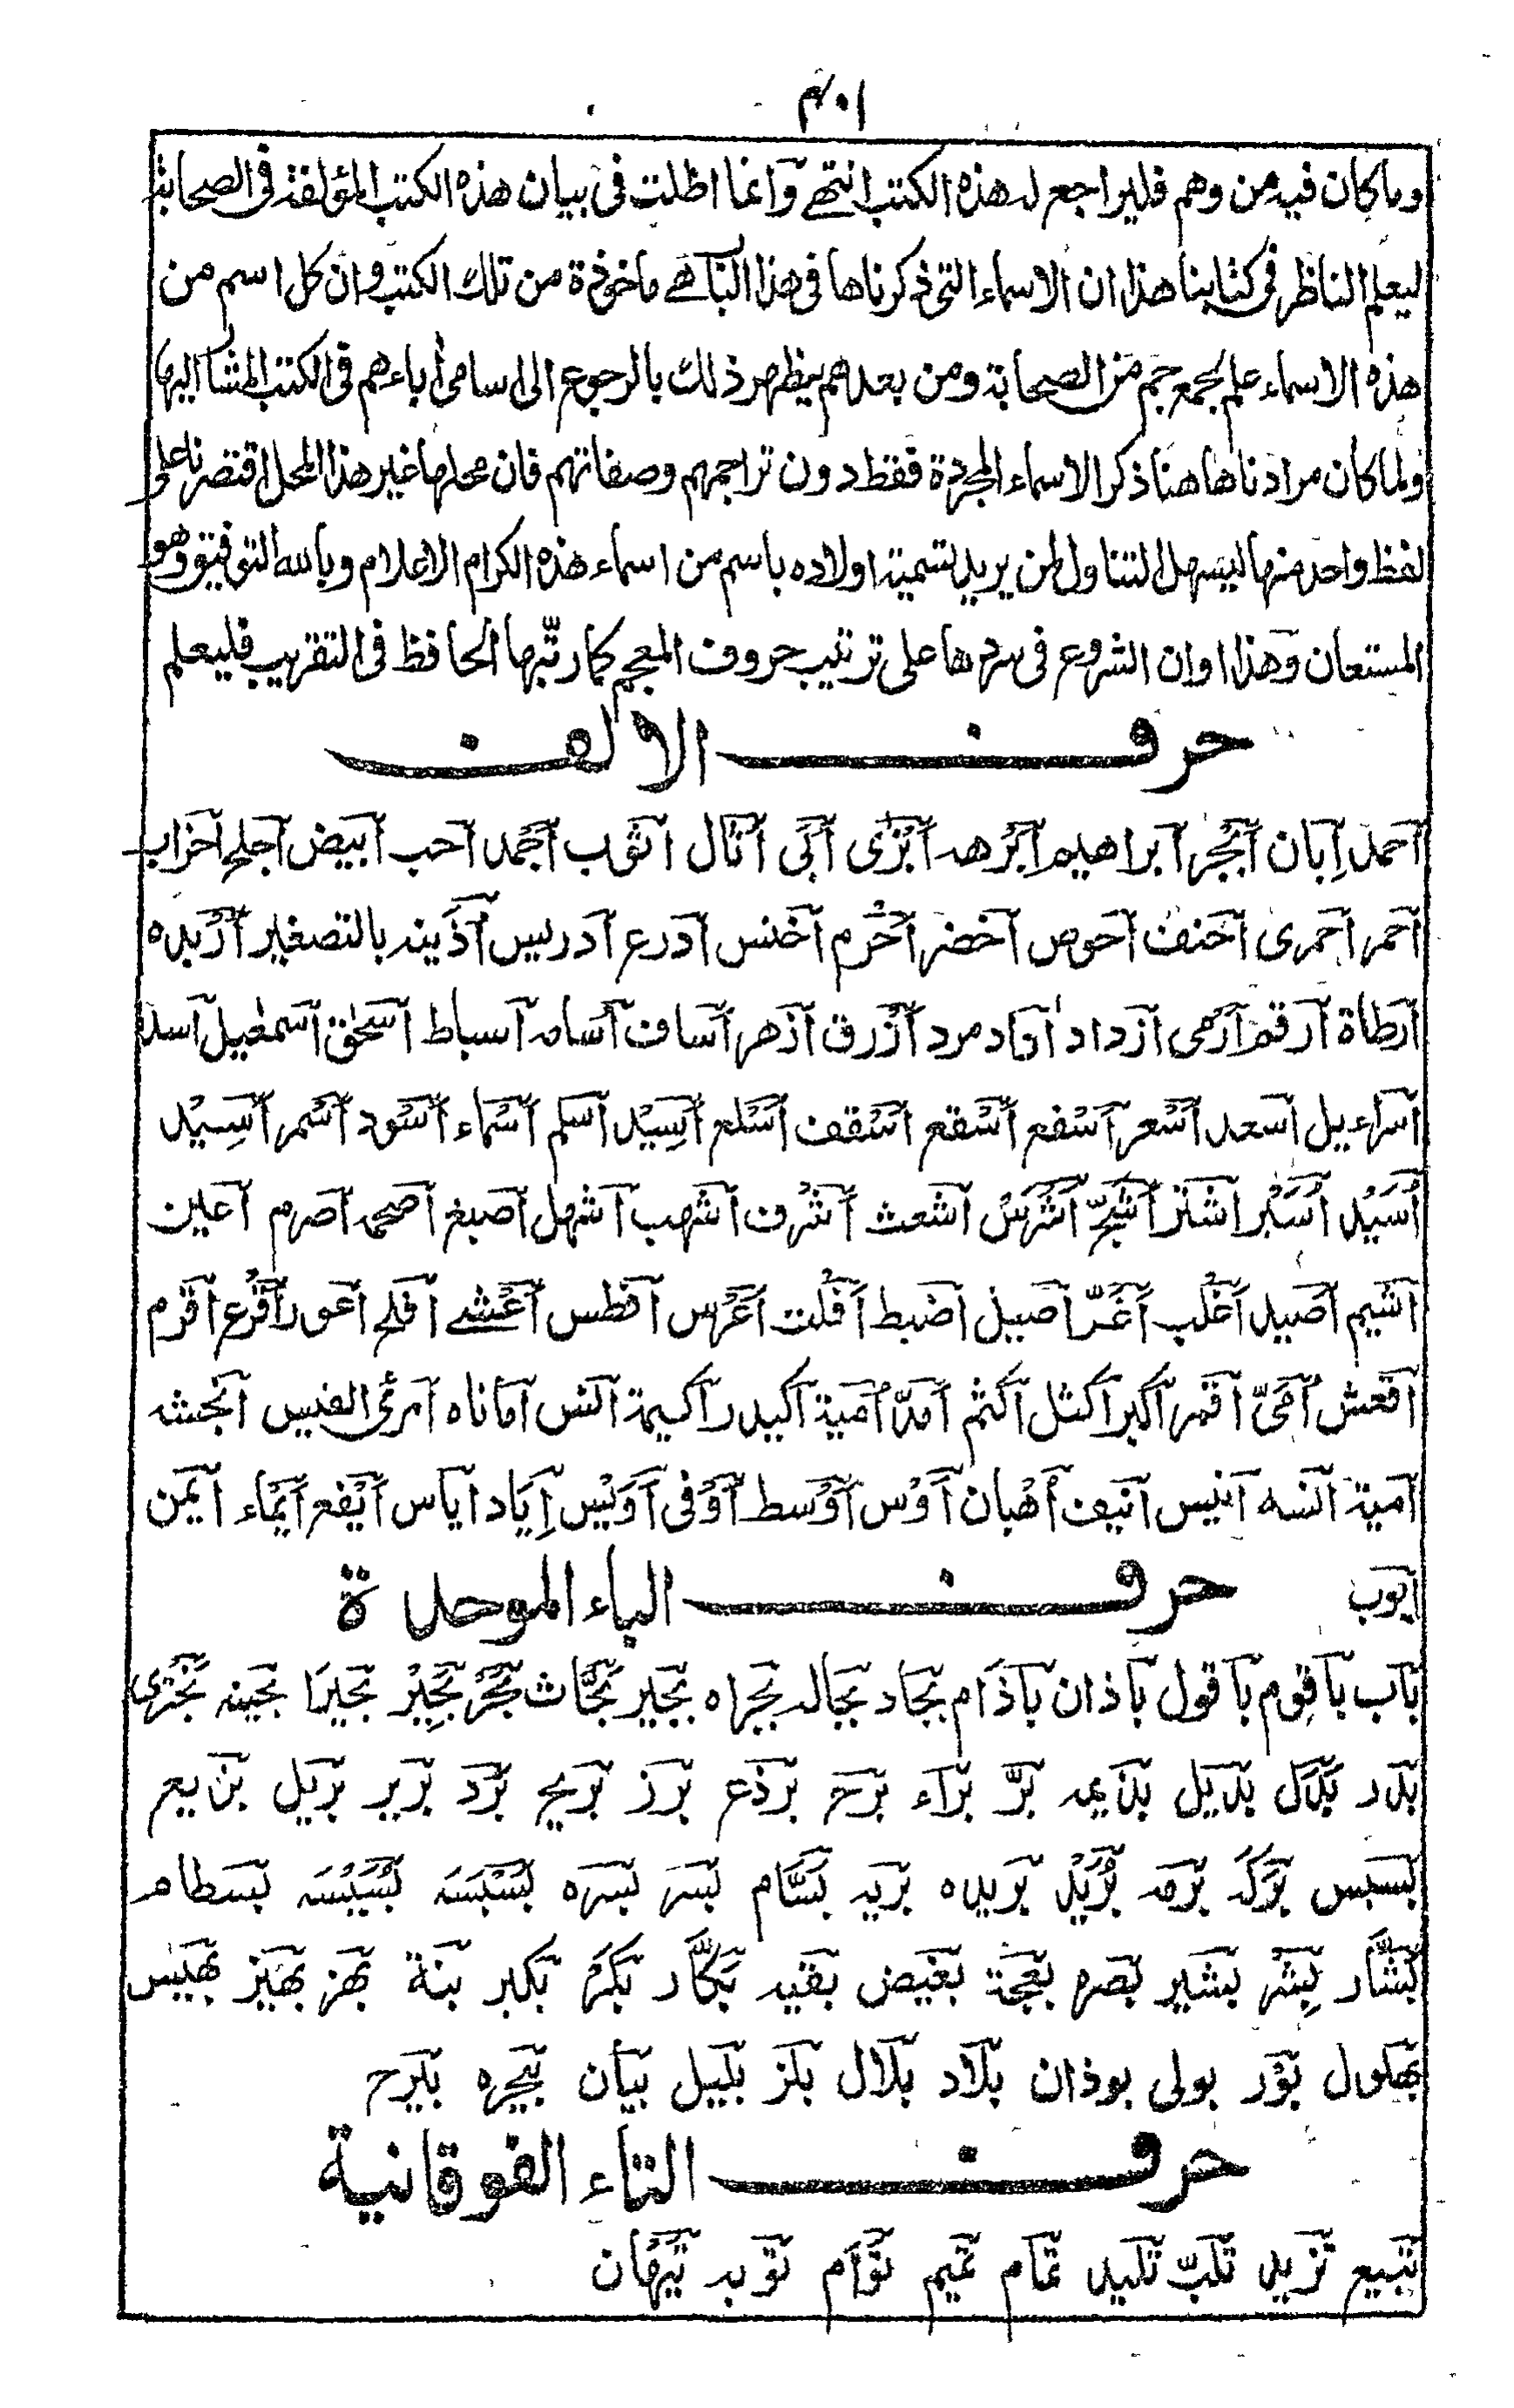 ١٠٤
وما كان فيه من وهم فليراجع له هذه الكتب انتهے وانما اطلت فى بيان هذه الكتب المؤلفة فى الصحابة
ليعلم الناظر فى كتابنا هذا ان الاسماء التى ذكرناها فى هذا الباب هے ماخوذة من تلك الكتب وان كل اسم من
هذه الاسماء علم لجمع جم من الصحابة ومن بعدهم يظهر ذلك بالرجوع الى اسامى أباءهم فى الكتب المشار اليها
ولما كان مرادنا ها هنا ذكر الاسماء المجردة فقط دون تراجمهم وصفاتهم فان محلها غير هذا المحل اقتصرنا على
لفظ واحد منها ليسهل التناول لمن يريد تسمية اولاده باسم من اسماء هذه الكرام الاعلام وبالله التوفيق وهو
المستعان وهذا اوان الشروع فى سردها على ترتيب حروف المعجم كما رتّبها الحافظ فى التقريب فليعلم
حرف الالف
احمد اِبان اَبْجُر ابراهيم اَبْرَهه اَبْزٰى اُبَىّ اُثال اثوب اَجْمد احب ابيض اجلح احزاب
احمر احمرى احنف احوص اخضر اخرم اخنس ادرع ادريس اُذَينه بالتصغير اَرْبده
ارطاة ارقم ازداد مرد ازرق ازهر اساف اسامه اسباط اسحٰق اسمٰعيل اسد
اسراءيل اسعد اَسْعر اَسْفع اَسْقع اَسْقف اَسْلع اَسِيْد اسلم اَسْماء اَسْود اَسْمر اَسِيْد
اُسَيْد اُسَيْر اشتر اَشَجّ اَشْرَس اشعث اَشْرف اشهب اشهل اصبغ اصحمه اصرم اعين
اشيم اصيد اَغْلب اَغَرّ اصيل اضبط اَفْلت افطس اَعْشے افلح اعور اَقْرع اقرم
اقعش اقمر اكبر اكتل اكثم اُمَية اكيدر اكيمة انس اماناه امرئ القيس انجشه
امية انسه انيس انيف اُهْبان اَوْس اَوْسط اَوْفى اُوَيْس اِيَاد اياس اَيْفع ايماء ايمن
ايوب
حرف الباء الموحدة
باب باقوم باقول باذان باذام بجاد بجاله بجراه بجير بَحّاث بَحْر بَحِيْر بحيرا بحينه بَخْترى
بدر بديل بذيمه بَرّ بَرّاء برح برذع برز بريح بُرْد برير بريل بزيع
بسبس بَرَكَه برمه بُرَيْد بريده بريه بَسَّام بسر بسره بَسْبَسَه بُسَيْسَه بسطام
بشّار بِشْر بشير بصره بعجة بغيض بقيه بَكّار بَكْر بكير بنة بهز بهيز بهيس
بهلول بَوْر بولى بوذان بلاد بلال بلز بليل بيان بيجره بيرح
حرف التاء الفوقانية
تبيع تزيد تلبّ تليد تمام تميم تَوْأم توبه تَيَّهان